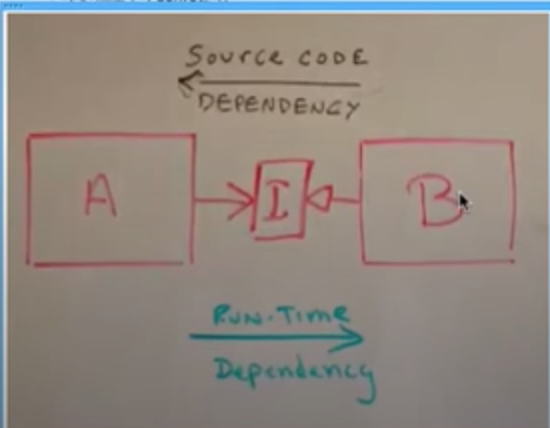 Source CODE
DEPENDENCY
A
I
B
Run-Time
Dependency